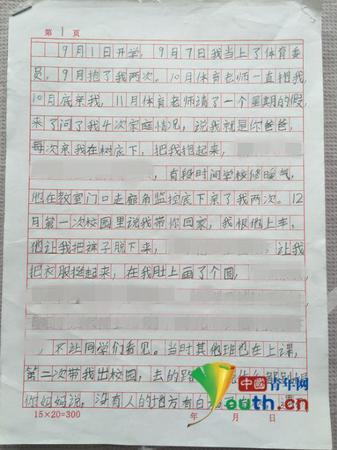 第1页
9月1日开学,9月7日我当上了体育委
员。9月抱了我两次。10月体育老师一直抱我,
10月底亲我,11月体育老师请了一个星期的假,
来了问了我4次家庭情况,说我就是你爸爸,
每次亲我在树底下,把我抱起来,
有段时间学校修暖气,
他在教室门口走廊 监控底下亲了我两次。12
月第一次校园里说我带你回家,我 他 上车,
他让我把裤子脱下来, 让我
把衣服 起来,在我肚上画了个圆,
,不让同学们看见。当时其他班也在上课,
第二次带我出校园,去的路
你妈妈说,没有人的地方
15×20=300 年 月 日
中國青年网
Youth.cn